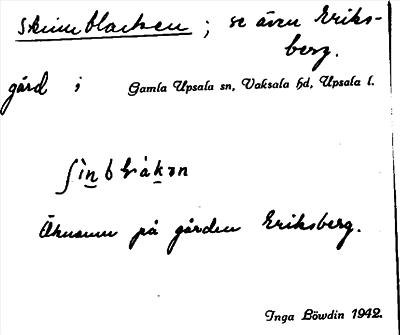 Skinnblacken ; se även Eriks-
berg.
gård ; Gamla Upsala sn, Vaksala hd, Upsala l.
Öknamn på gården Eriksberg.
Inga Löwdin 1942.